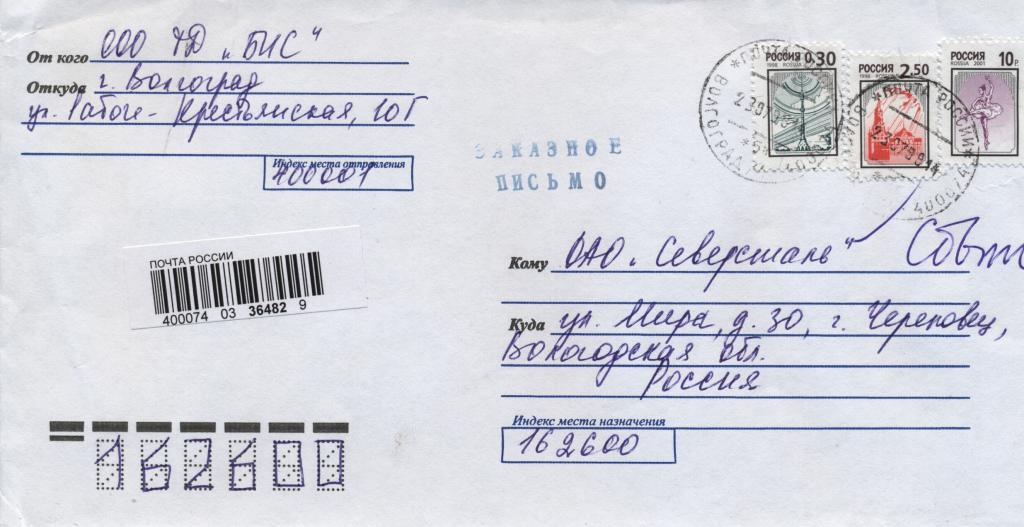 От кого ООО ТД "БИС"
Откуда г. Волгоград
ул. Рабоче-Крестьянская, 10Г
Индекс места отправления
400001
ЗАКАЗНОЕ
ПИСЬМО
РОССИЯ 0.30
1998 ROSSIJA
РОССИЯ 2.50
1998 ROSSIJA
РОССИЯ 10 Р.
ROSSIJA 2001
*ПОЧТА РОССИИ*
ВОЛГОГРАД
400074
ПОЧТА РОССИИ
400074 03 36482 9
Кому ОАО "Северсталь"
Куда ул. Мира, д. 30, г. Череповец,
Вологодская обл.
Россия
Индекс места назначения
162600
162600